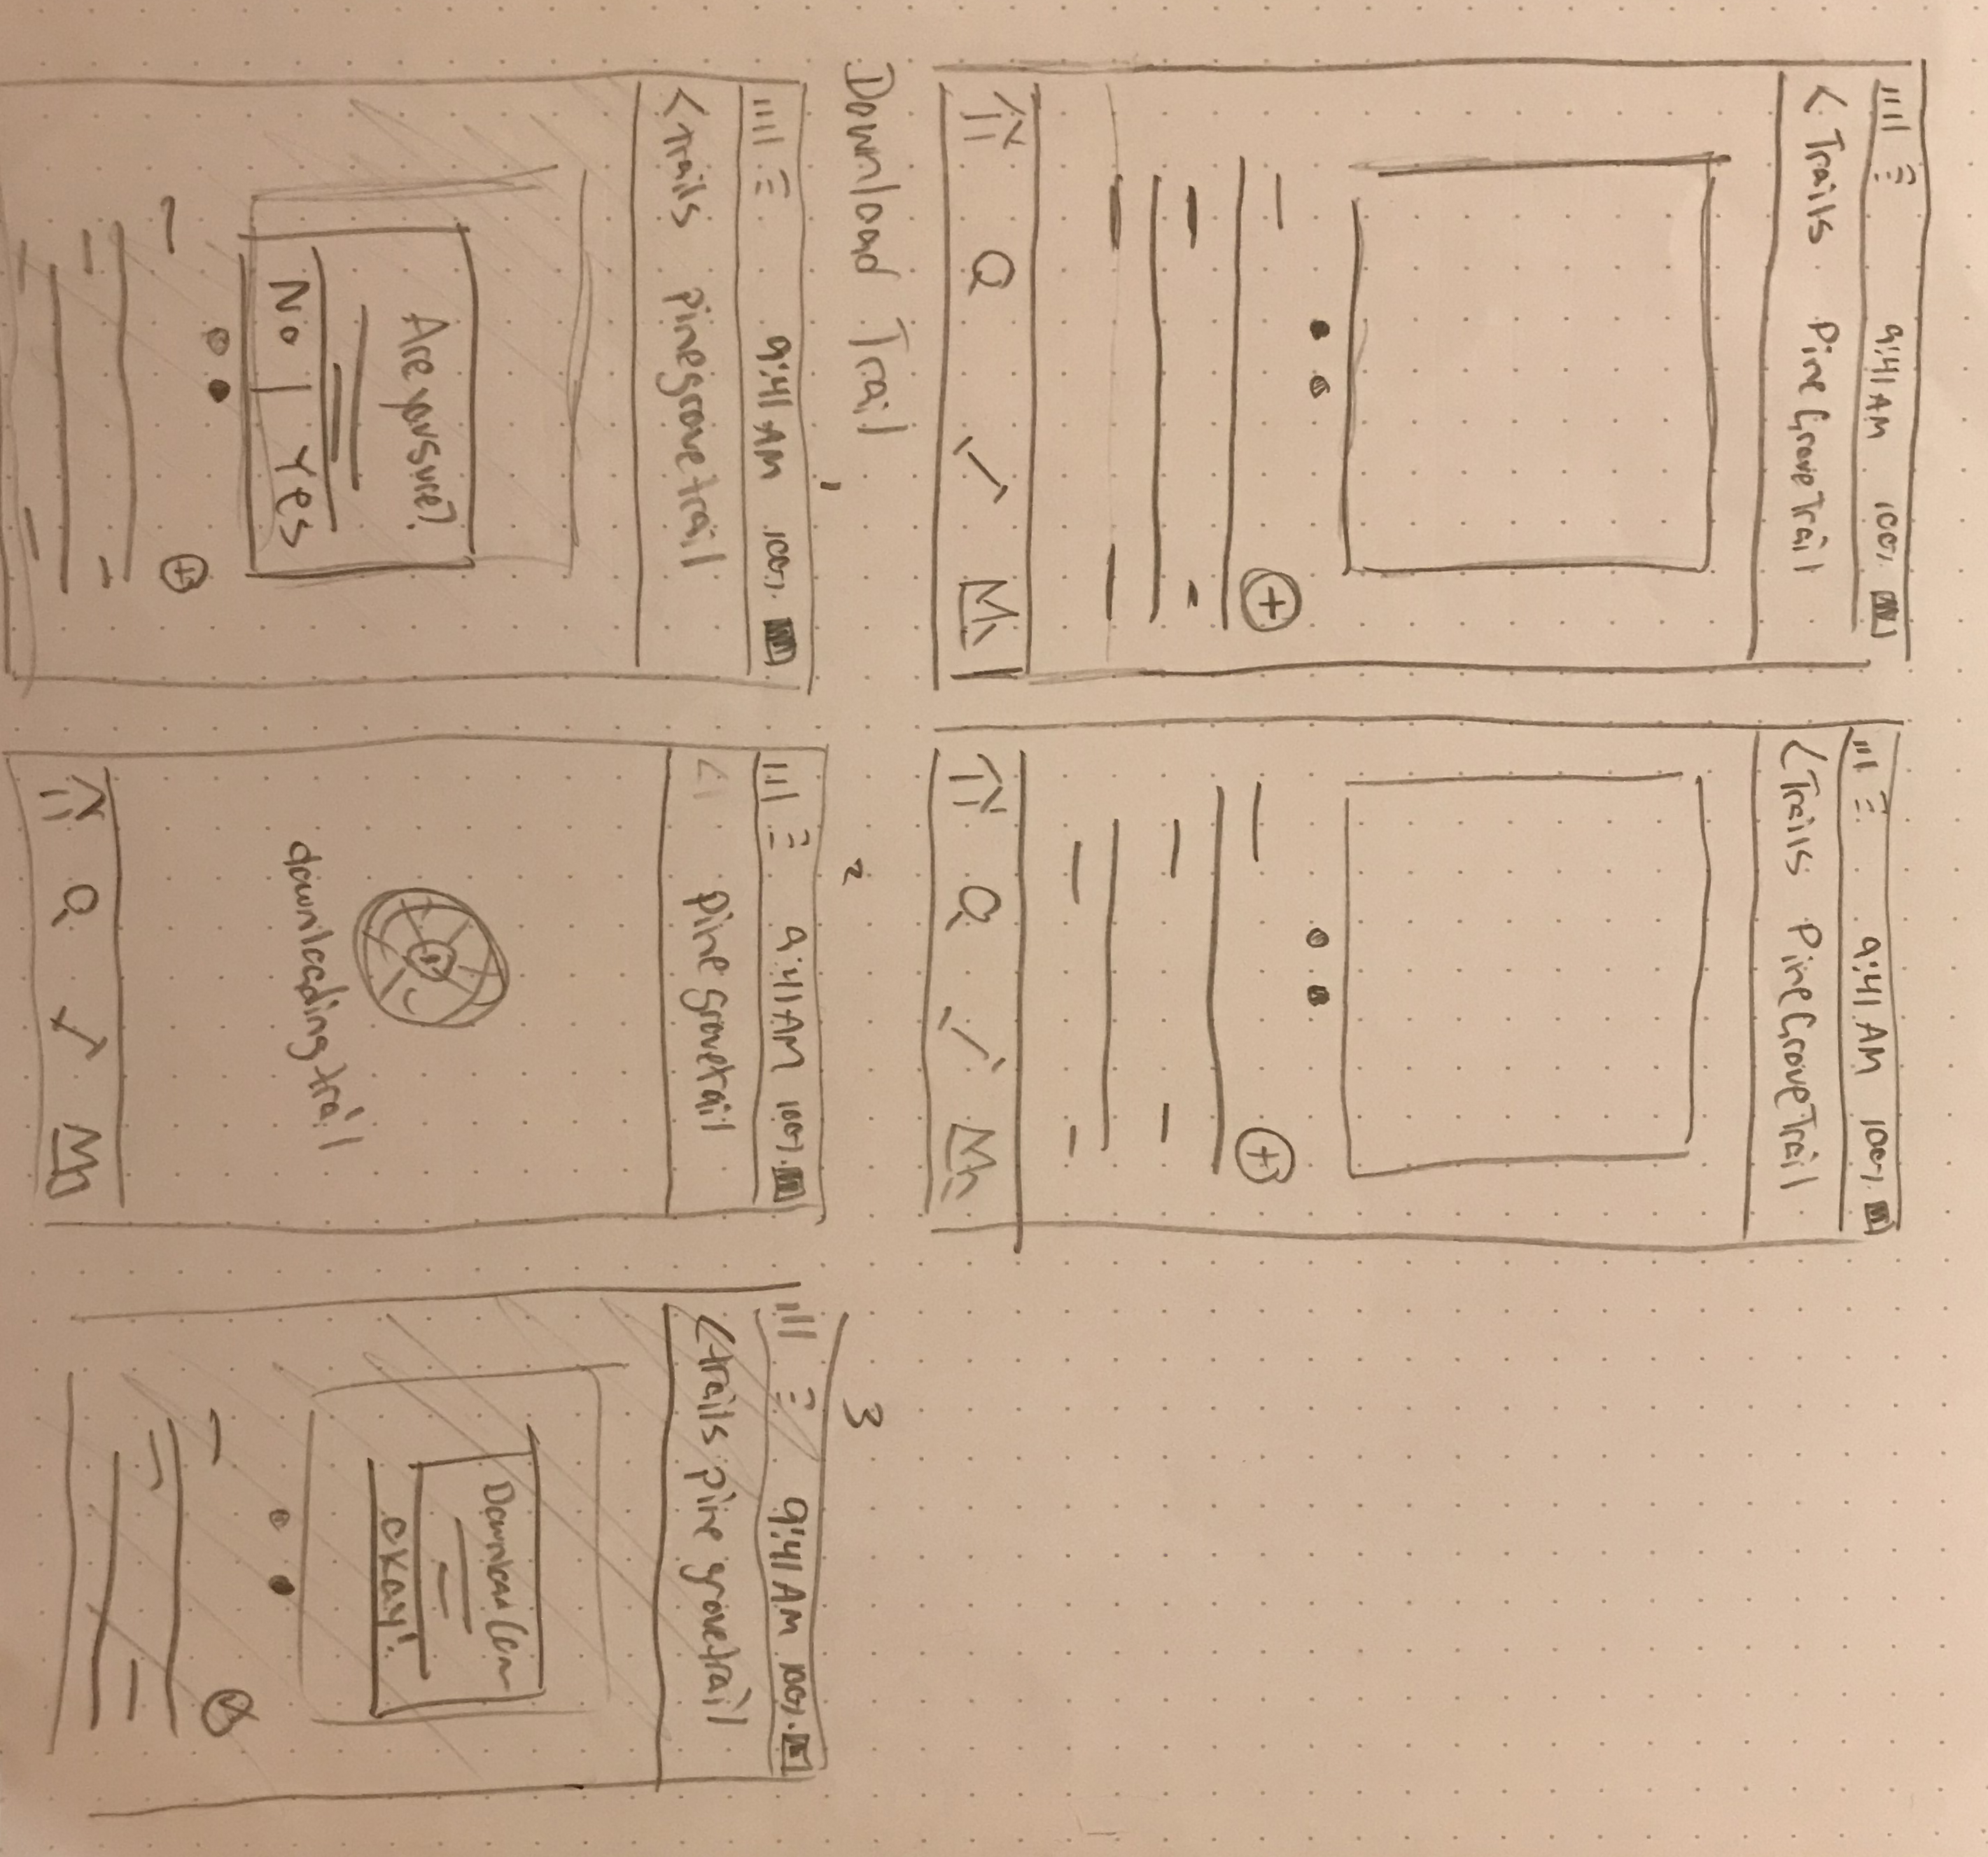 9:41 AM 100%
< Trails Pine Grove Trail
9:41 AM 100%
< Trails Pine Grove Trail
Download Trail
1
9:41 AM 100%
< trails pine grove trail
Are you sure?
No | Yes
2
9:41 AM 100%
< pine grove trail
downloading trail
3
9:41 AM 100%
< trails pine grove trail
Download
okay!